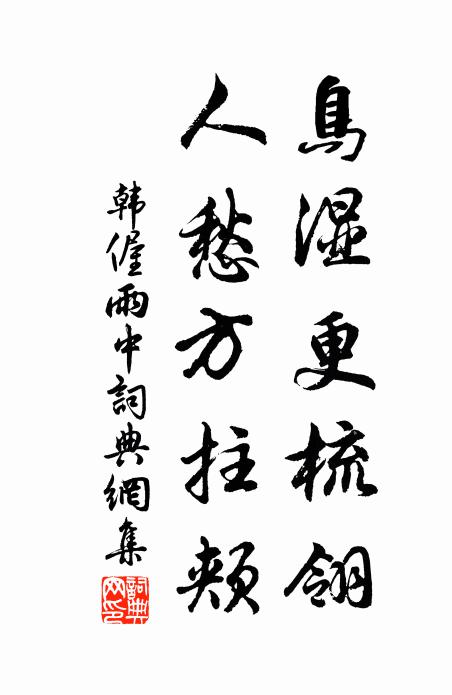 鳥湿更梳翎
人愁方拄頰
韩偓雨中詞典網集
詞典
网印